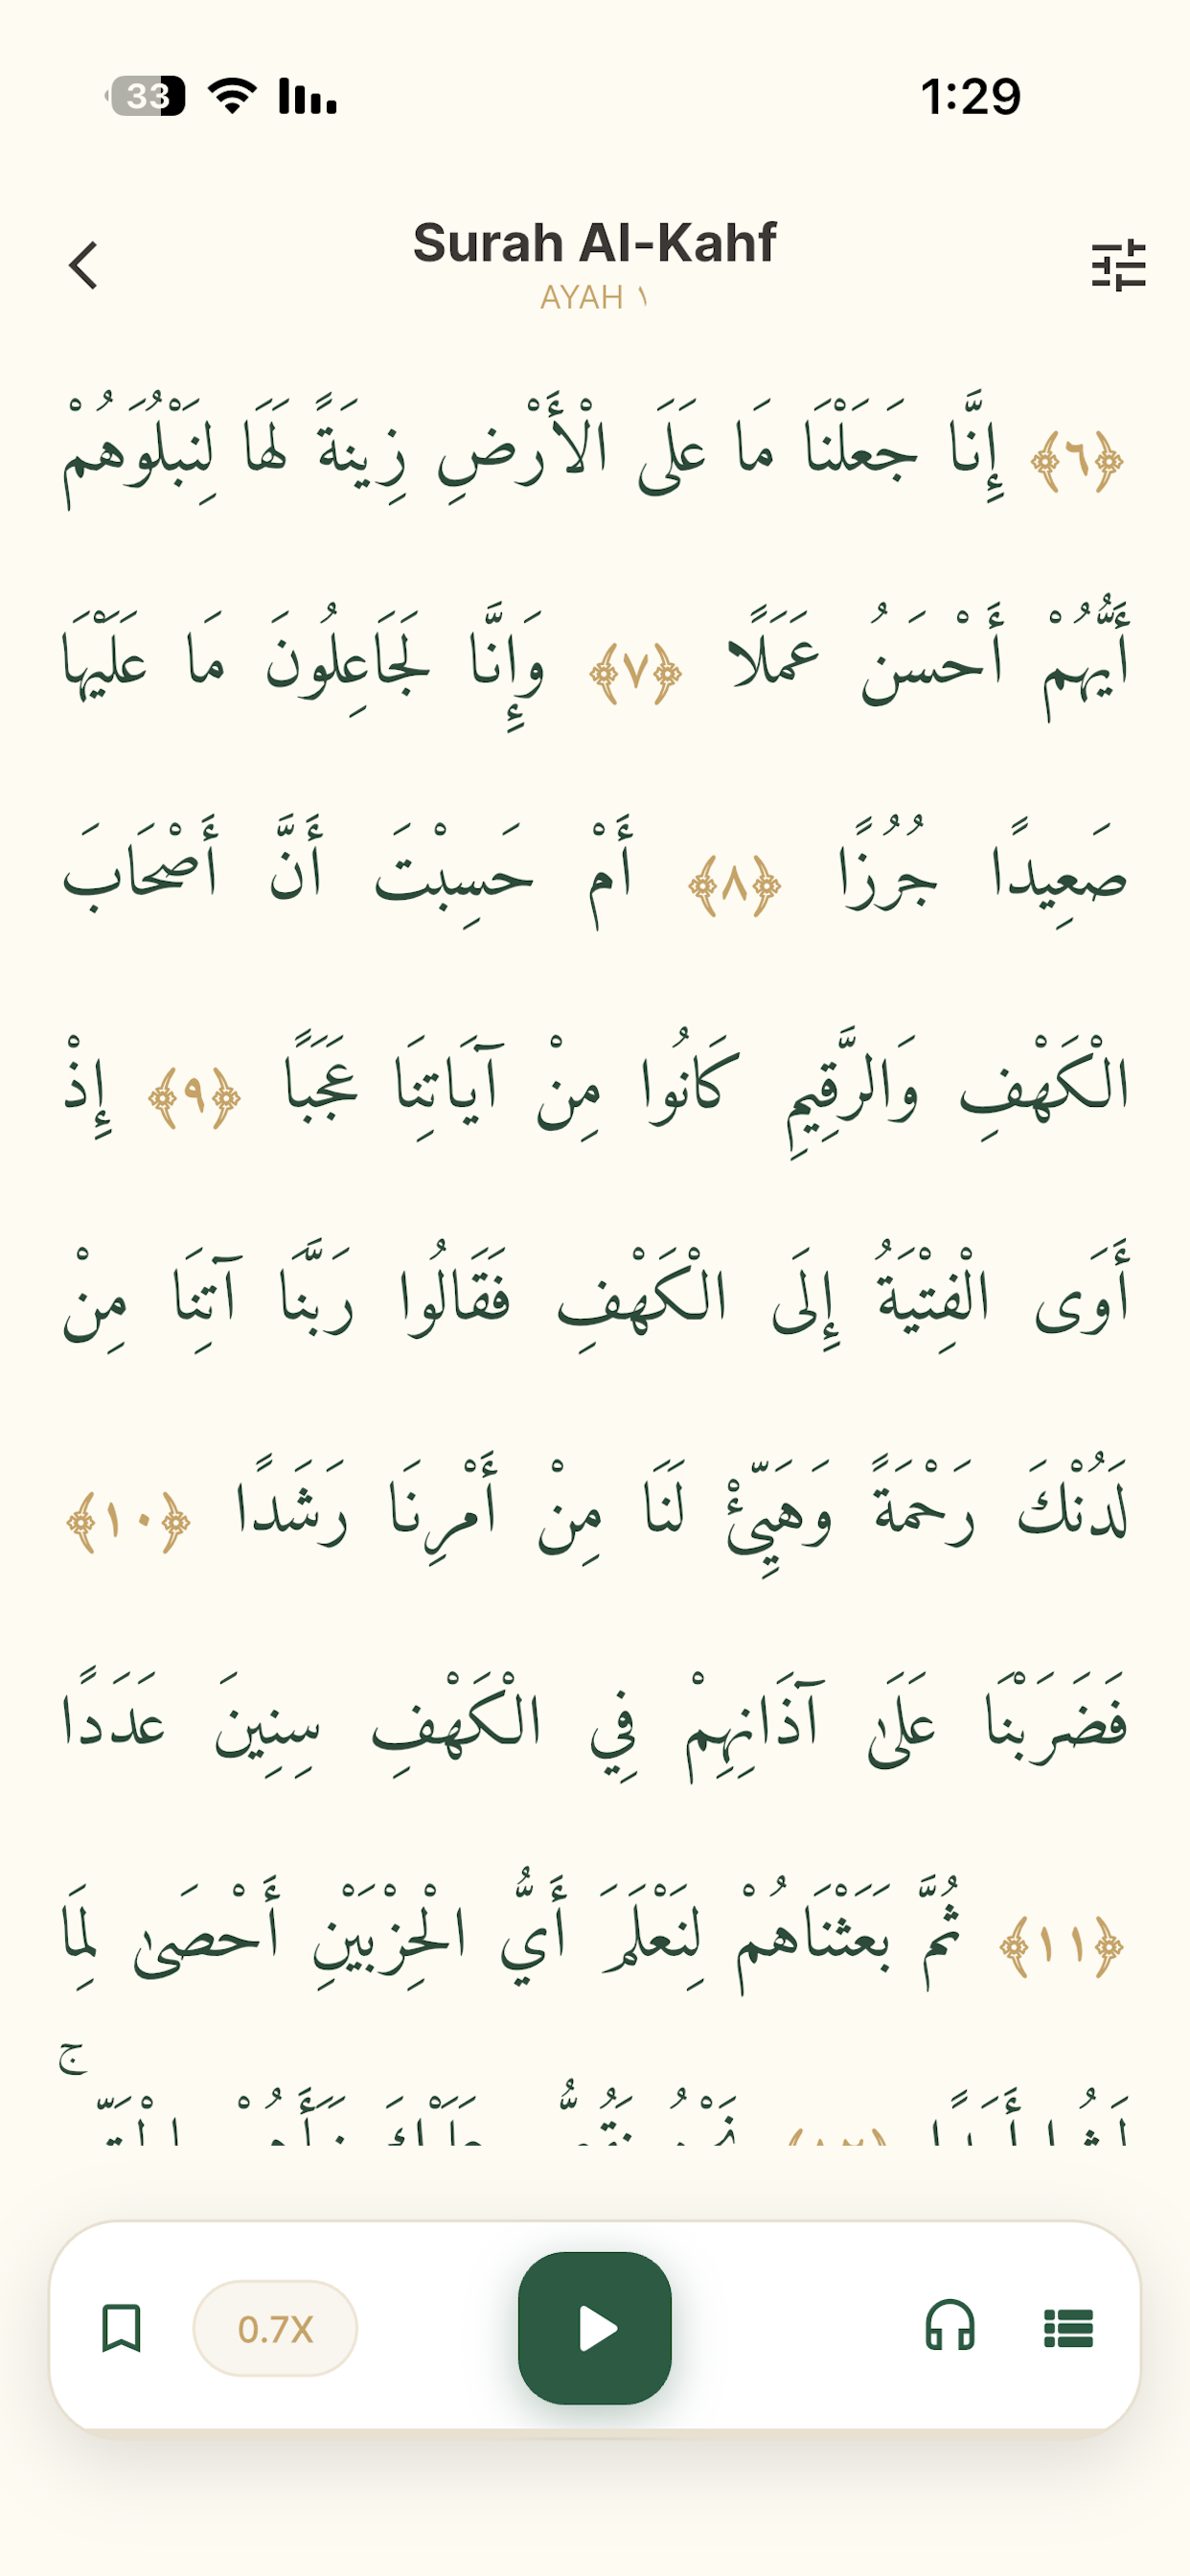 33 1:29
Surah Al-Kahf
AYAH ١
﴿٦﴾ إِنَّا جَعَلْنَا مَا عَلَى الْأَرْضِ زِينَةً لَهَا لِنَبْلُوَهُمْ
أَيُّهُمْ أَحْسَنُ عَمَلًا ﴿٧﴾ وَإِنَّا لَجَاعِلُونَ مَا عَلَيْهَا
صَعِيدًا جُرُزًا ﴿٨﴾ أَمْ حَسِبْتَ أَنَّ أَصْحَابَ
الْكَهْفِ وَالرَّقِيمِ كَانُوا مِنْ آيَاتِنَا عَجَبًا ﴿٩﴾ إِذْ
أَوَى الْفِتْيَةُ إِلَى الْكَهْفِ فَقَالُوا رَبَّنَا آتِنَا مِنْ
لَدُنْكَ رَحْمَةً وَهَيِّئْ لَنَا مِنْ أَمْرِنَا رَشَدًا ﴿١٠﴾
فَضَرَبْنَا عَلَىٰ آذَانِهِمْ فِي الْكَهْفِ سِنِينَ عَدَدًا
﴿١١﴾ ثُمَّ بَعَثْنَاهُمْ لِنَعْلَمَ أَيُّ الْحِزْبَيْنِ أَحْصَىٰ لِمَا
0.7X